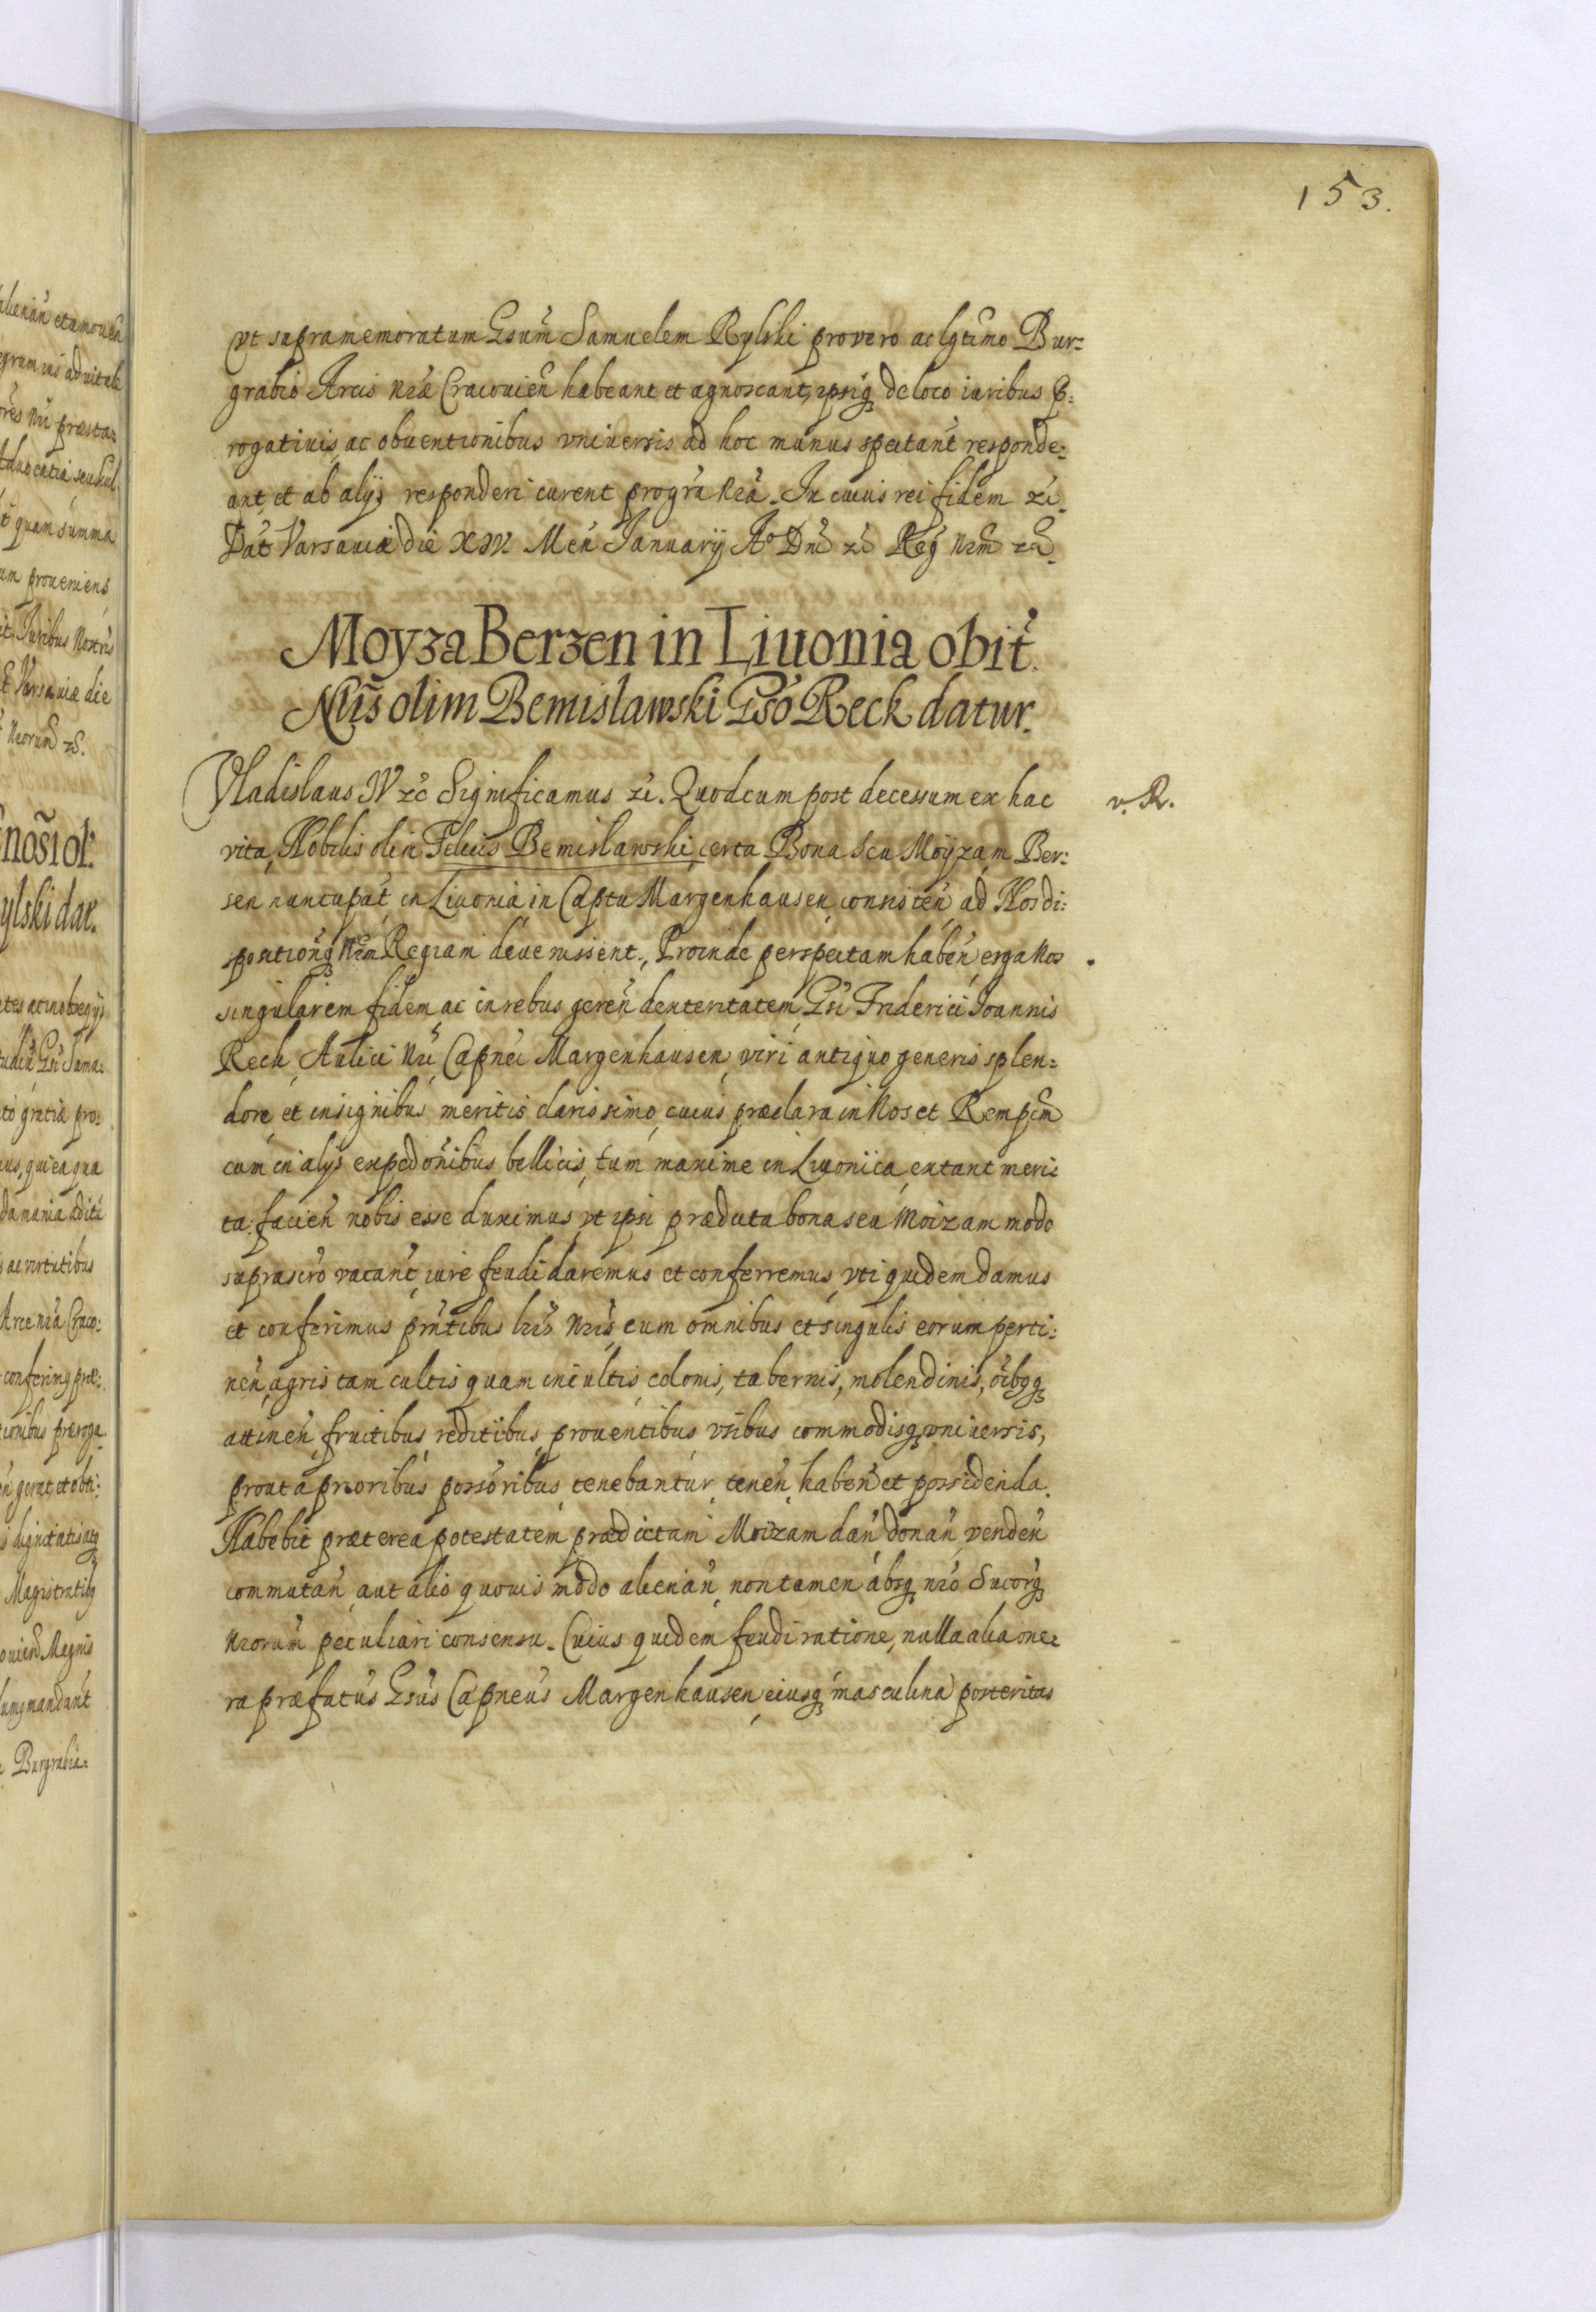 153.
vt supramemoratum Gsum̃ Samuelem Rylski pro vero ac lgt̃imo Bur=
grabio Arcis nr̃æ Cracouień habeant et agnoscant, ipsiq̃ȝ de loco iuribus p̱=
rogatiuis ac obuentionibus vniuersis ad hoc munus spectant̃ responde=
ant, et ab alijs responderi curent pro gr̃a nr̃a. In cuius rei fidem zc̃.
Dat̃ Varsauiæ die XIV. Meń Januarij Ao Dnĩ zc̃ Reg̃ nr̃m̃ zc̃.
Moyza Berzen in Liuonia obit̃.
Nlis̃ olim Bemislawski Gso̊ Reck datur.
Vladislaus IV zc̃ Significamus zc̃. Quod cum post decessum ex hac
v. R.
vita, Nobilis olim Felicis Bemislawski, certa Bona seu Moyzam Ber=
sen nuncupat̃ in Liuonia in Capt̃u Margenhausen, consisteń ad Nos di=
spositionq̃ȝ nr̃am Regiam deuenissent. Proinde perspectam habeń erga nos
singularem fidem ac in rebus gereń dexteritatem Gsi Friderici Joannis
Reck, Aulici nri, Capnei Margenhausen, viri antiquo generis splen=
dore, et insignibus meritis clarissimo, cuius præclara in Nos et Rempcm̃
cum in alijs expedõnibus bellicis, tum maxime in Liuonica, extant meri=
ta: facień nobis esse duximus, vt ipsi prædicta bona seu Moizam modo
suprascr̃o vacant̃, iure feudi daremus et conferremus, vti quidem damus
et conferimus pñtibus lr̃is nr̃is, cum omnibus et singulis eorum perti=
neń, agris tam cultis quam incultis, colonis, tabernis, molendinis, oĩbqȝ
attineń, fructibus, reditibus, prouentibus vsibus commodisqȝ vniuersis,
prout a prioribus posso͂ribus tenebantur, teneń, habeń et possidenda.
Habebit præterea potestatem prædictam Moizam dań, donań, vendeń
commutań, aut alio quouis modo alienań, non tamen absqȝ nr̃o Sucorqȝ
nrorum̃ peculiari consensu. Cuius quidem feudi ratione, nulla alia one=
ra præfatus Gsus Capneus Margenhausen, eiusqȝ masculina posteritas